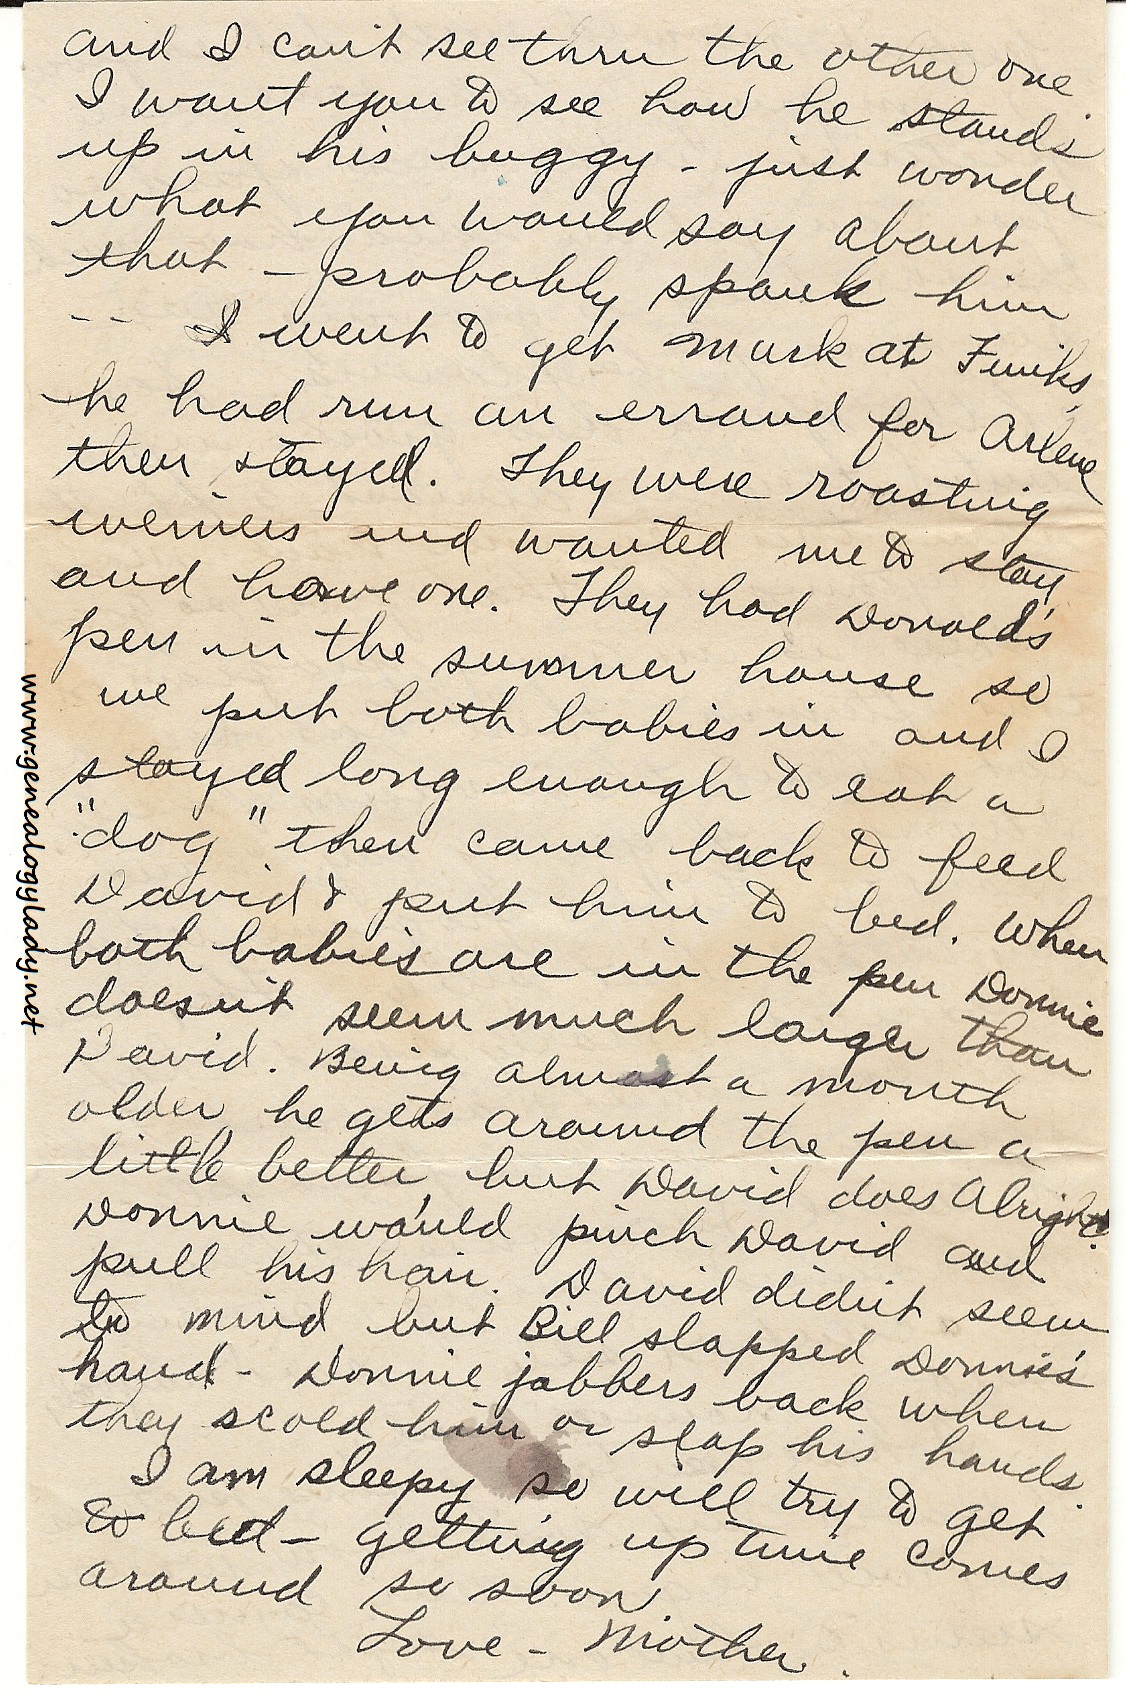 and I can't see thru the other one
I want you to see how he stands
up in his buggy - just wonder
what you would say about
that - probably spank him
-- I went to get Mark at Funks,
he had run an errand for Arlene
then stayed. They were roasting
weiners and wanted me to stay
and have one. They had Donald's
pen in the summer house so
we put both babies in and I
stayed long enough to eat a
"dog" then came back to feed
David & put him to bed. When
both babies are in the pen Donnie
doesn't seem much larger than
David. Being almost a month
older he gets around the pen a
little better, but David does alright.
Donnie would pinch David and
pull his hair. David didn't seem
to mind but Bill slapped Donnie's
hand - Donnie jabbers back when
they scold him or slap his hands.
I am sleepy so will try to get
to bed - getting up time comes
around so soon
Love - Mother.
www.genealogylady.net